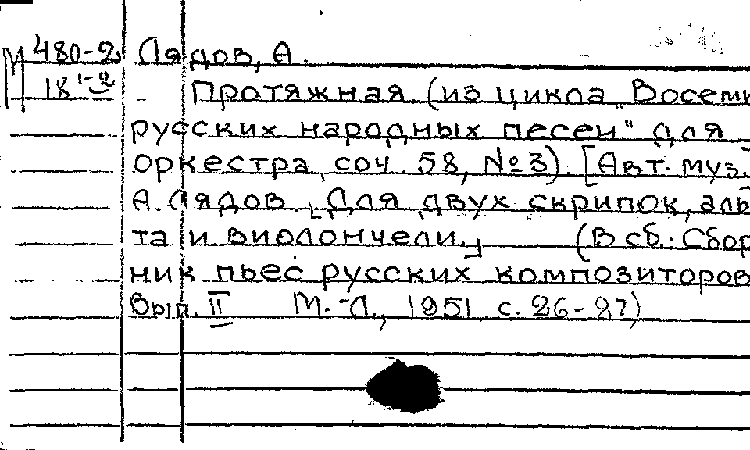 М 480-2 Лядов, А.
18
Протяжная (из цикла „Восемь
русских народных песен" для
оркестра, соч. 58, №3). [Авт. муз.
А. Лядов. Для двух скрипок, аль-
та и виолончели.] (В сб.: Сбор-
ник пьес русских композиторов
Вып. II М.-Л., 1951 с. 26-27)